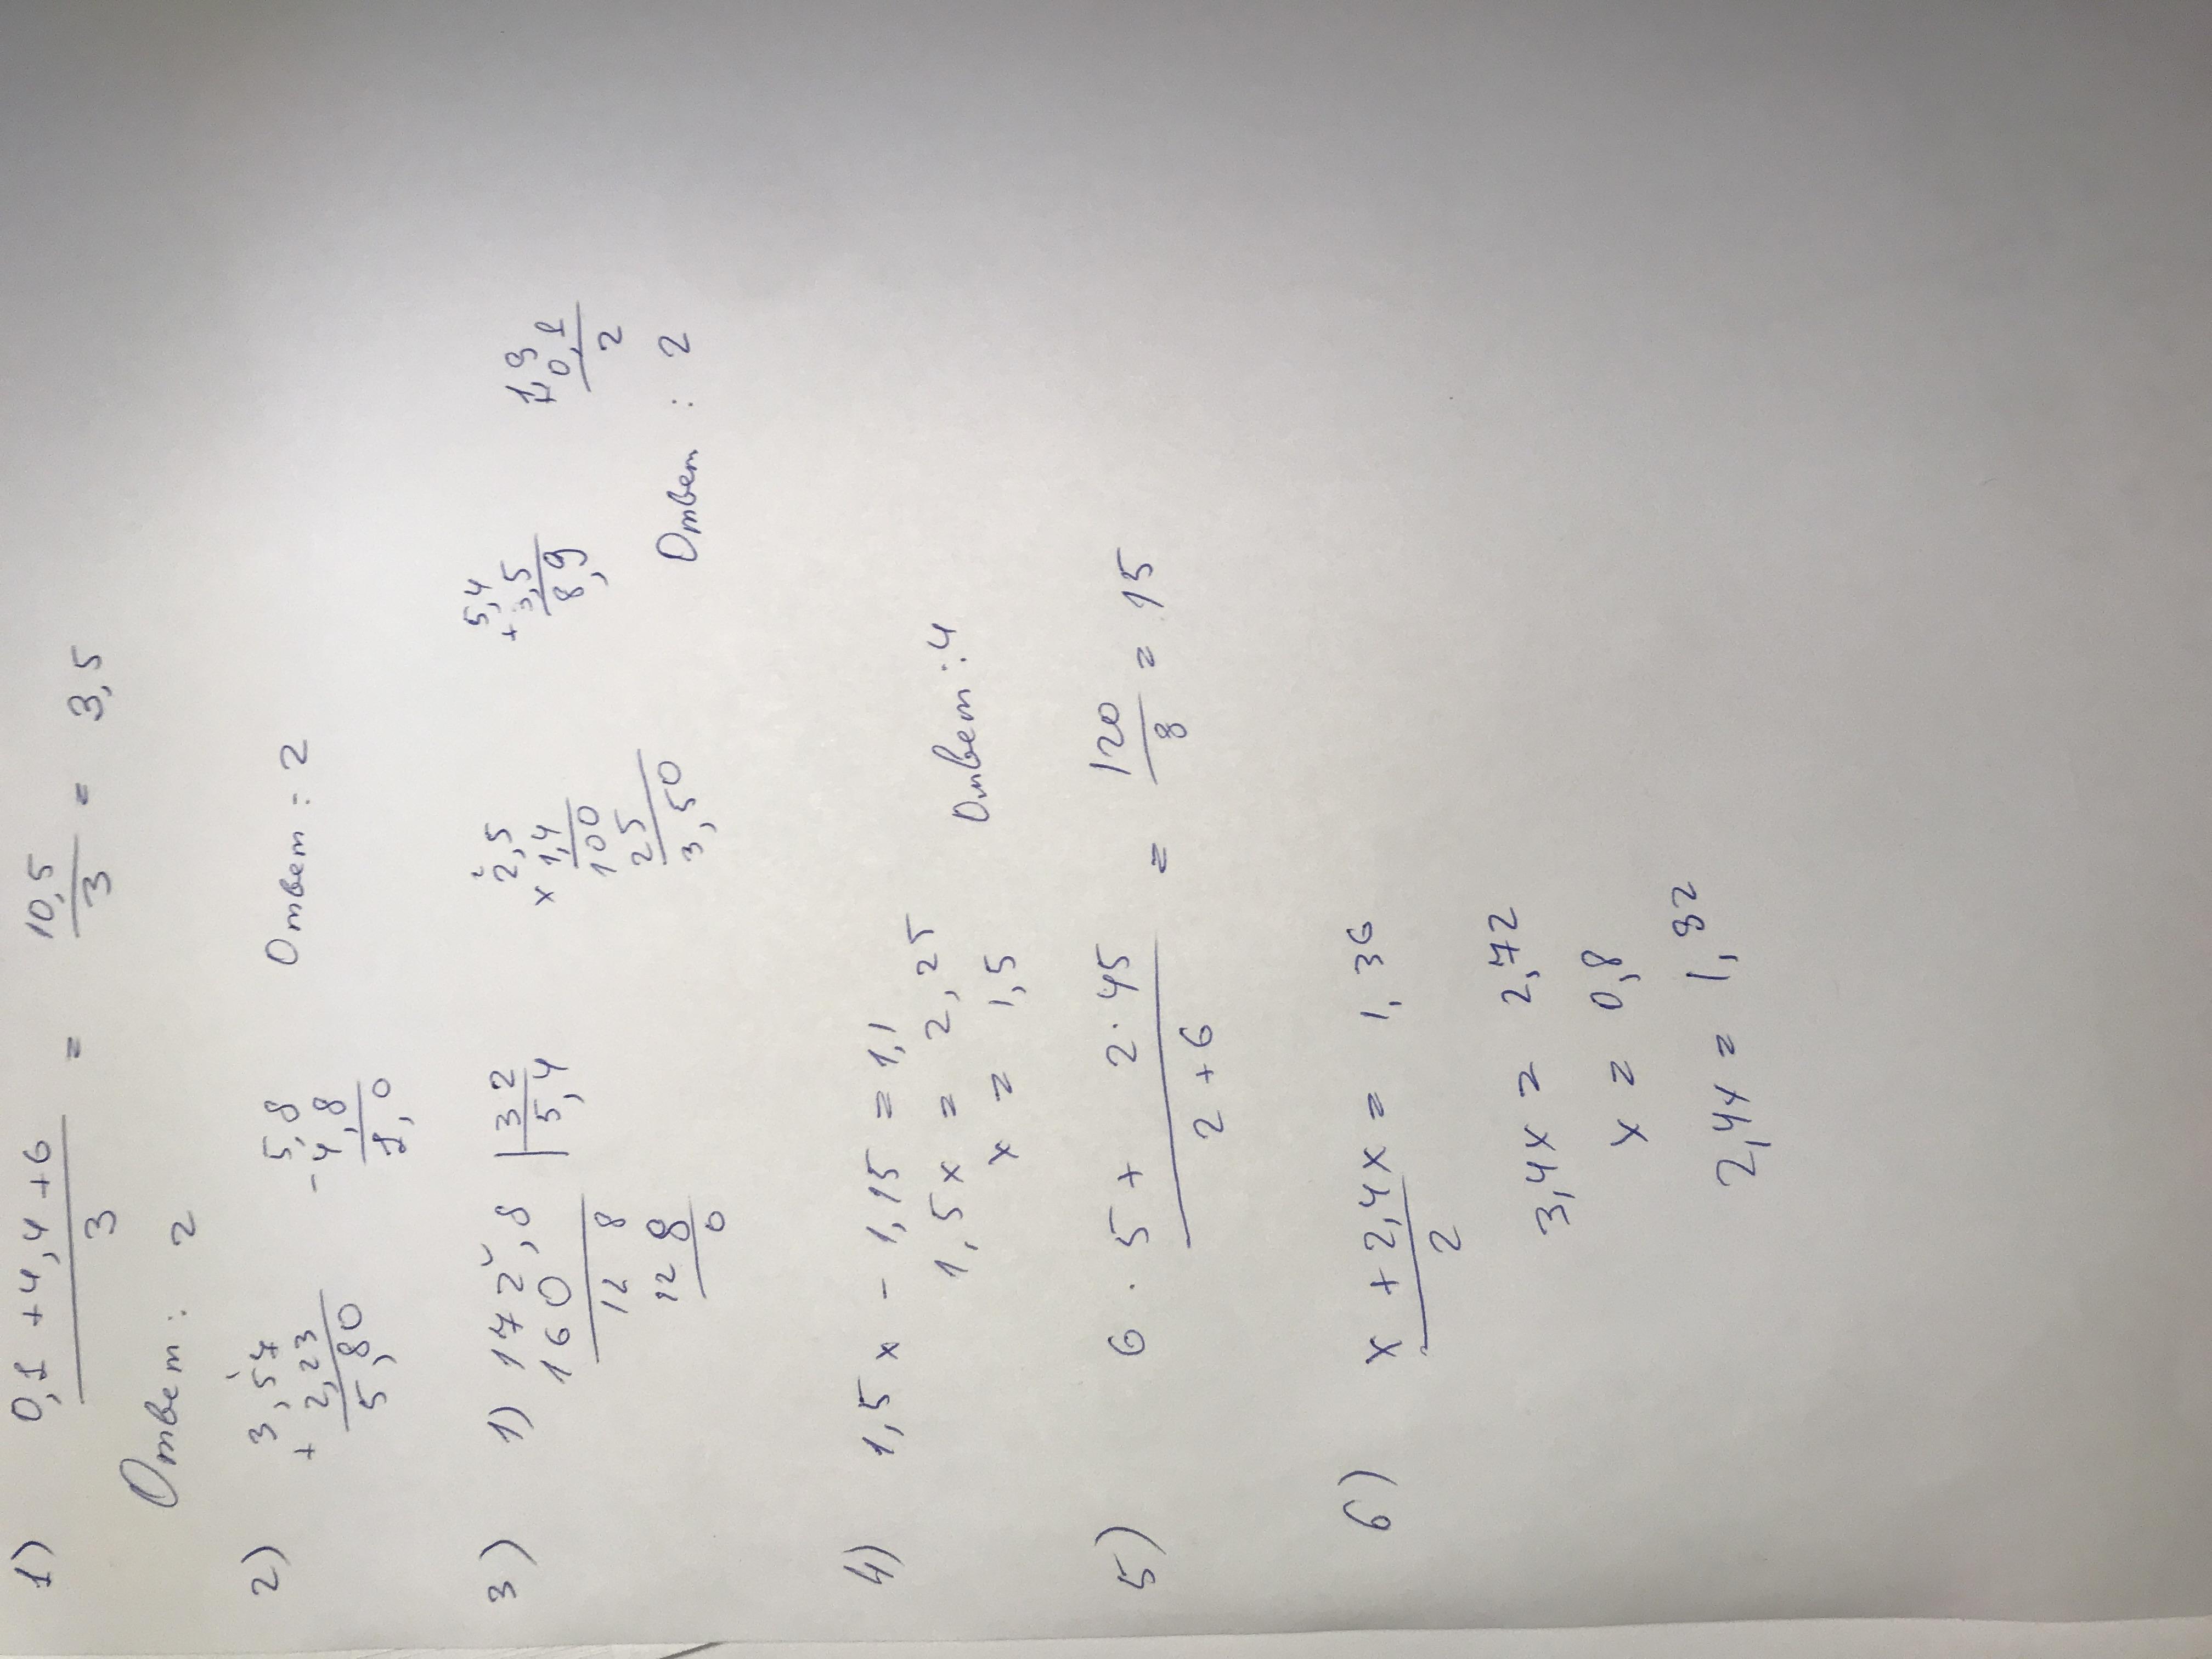 1) 0,1 + 4,4 + 6 / 3 = 10,5 / 3 = 3,5
Ответ: 2
2) 3,57 + 2,23 5,80
- 5,8 4,8 1,0
Ответ: 2
3) 1) 172,8 | 32
160 5,4
12 8
12 8
0
2,5
x 1,4
100
25
3,50
5,4
+ 3,5
8,9
1,9
+ 0,1
2
Ответ: 2
4) 1,5x - 1,15 = 1,1
1,5x = 2,25
x = 1,5
Ответ: 4
5) 6 · 5 + 2 · 45 / 2 + 6 = 120 / 8 = 15
6) x + 2,4x / 2 = 1,36
3,4x = 2,72
x = 0,8
2,4x = 1,92